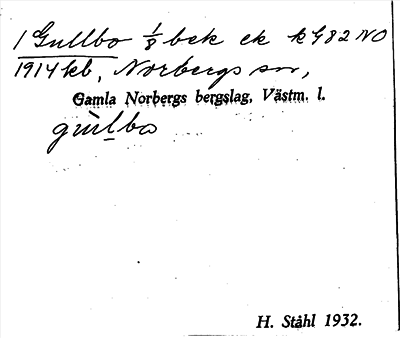 1 Gullbo 1/8 bek ek k G82 NO
1914 kb, Norbergs sn,
Gamla Norbergs bergslag, Västm. l.
gùlbo
H. Ståhl 1932.